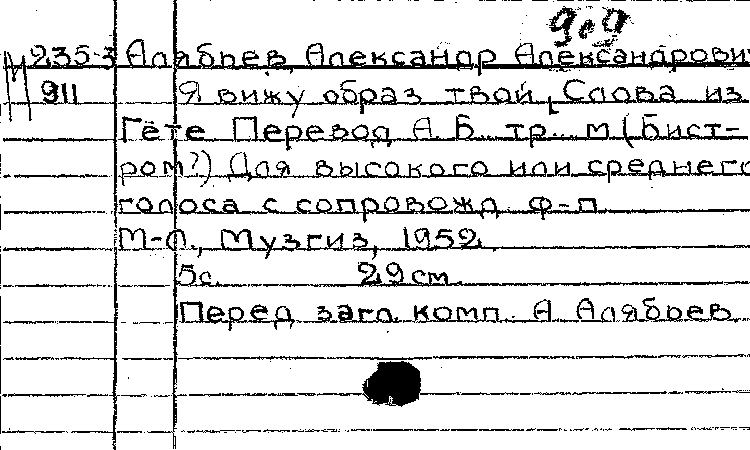 909
М 235-3 Алябьев, Александр Александрович
911 Я вижу образ твой. [Слова из
Гёте Перевод А. Б... тр... м (Бист-
ром?) Для высокого или среднего
голоса с сопровожд. ф-п.
М-Л., Музгиз, 1952.
5с. 29 см.
Перед загл. комп. А Алябьев